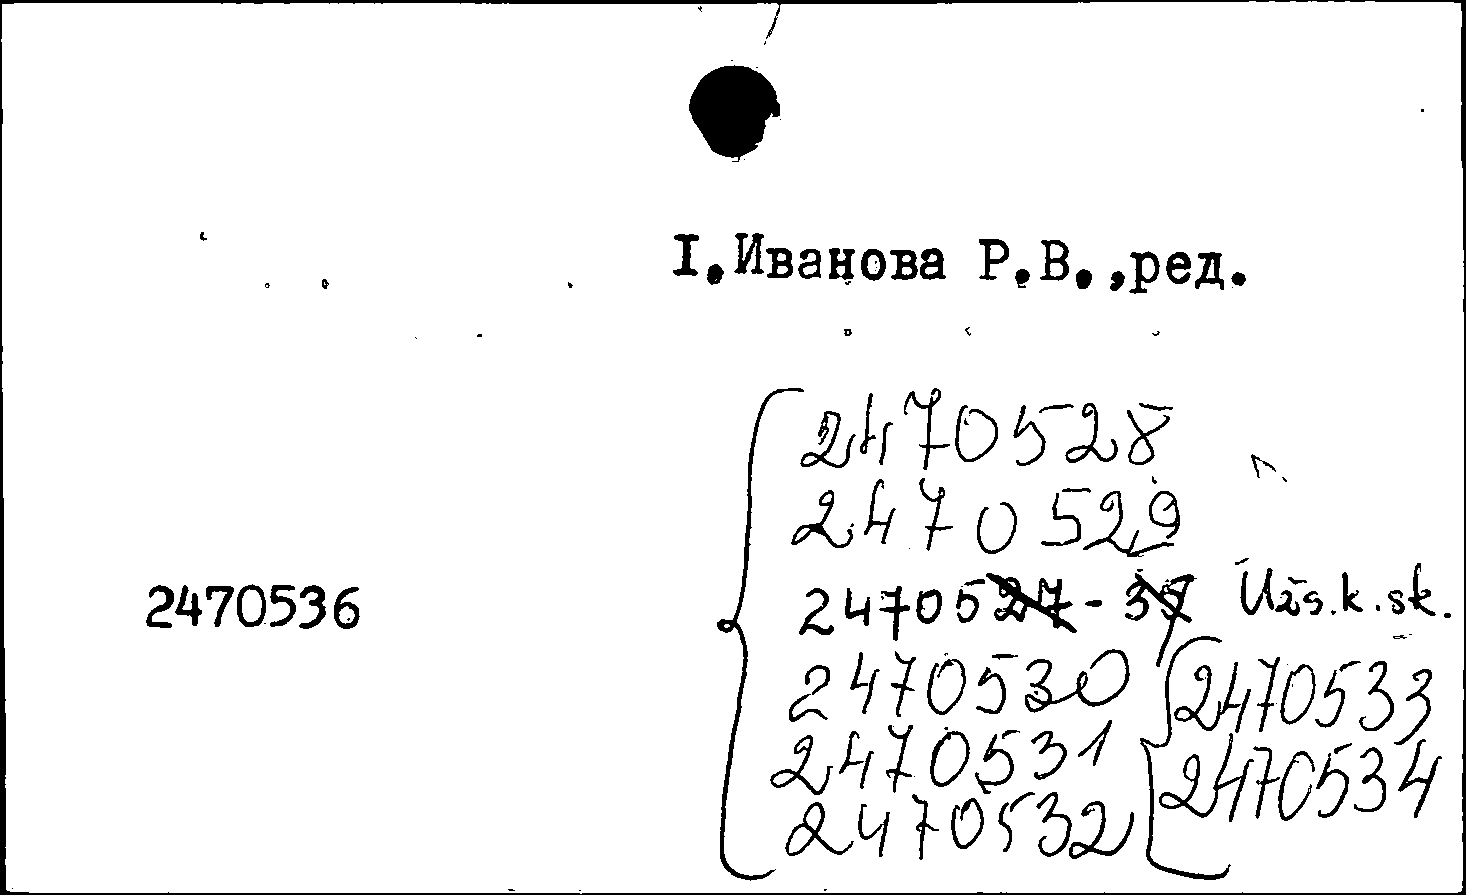 I.Иванова Р.В.,ред.
2470528
2470529
2470536
247052̶7̶ - 3̶5̶ Užs.k.sk.
2470530
2470531
2470532
2470533
2470534